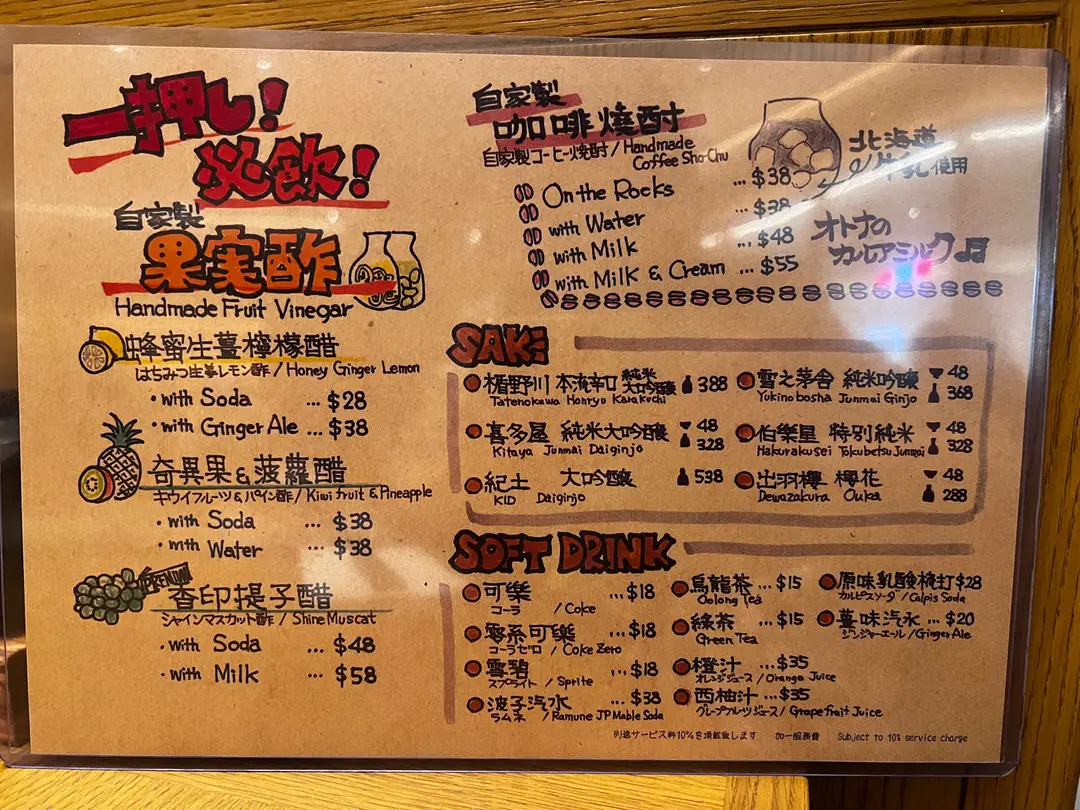 一押し!
必飲!
自家製
果実酢
Handmade Fruit Vinegar
蜂蜜生薑檸檬醋
はちみつ生姜レモン酢 / Honey Ginger Lemon
・with Soda ... $28
・with Ginger Ale ... $38
奇異果&菠蘿醋
キウイフルーツ&パイン酢 / Kiwi fruit & Pineapple
・with Soda ... $38
・with Water ... $38
香印提子醋
シャインマスカット酢 / Shine Muscat
・with Soda ... $48
・with Milk ... $58
自家製
咖啡燒酎
自家製コーヒー焼酎 / Handmade
Coffee Sho-Chu
On the Rocks ... $38
with Water ... $38
with Milk ... $48
with Milk & Cream ... $55
北海道
の牛乳使用
オトナの
カルアミルク♬
SAKE
楯野川 本流辛口 純米大吟醸 388
Tatenokawa Honryu Karakuchi
喜多屋 純米大吟醸 48
328
Kitaya Junmai Daiginjo
紀土 大吟醸 538
KID Daiginjo
雪之茅舎 純米吟醸 48
368
Yukinobosha Junmai Ginjo
伯樂星 特別純米 48
328
Hakurakusei Tokubetsu Junmai
出羽櫻 櫻花 48
288
Dewazakura Ouka
SOFT DRINK
可樂 ... $18
コーラ / Coke
零系可樂 ... $18
コーラゼロ / Coke Zero
雪碧 ... $18
スプライト / Sprite
波子汽水 ... $38
ラムネ / Ramune JP Mable Soda
烏龍茶 ... $15
Oolong Tea
綠茶 ... $15
Green Tea
橙汁 ... $35
オレンジジュース / Orange Juice
西柚汁 ... $35
グレープフルーツジュース / Grapefruit Juice
原味乳酸梳打 $28
カルピスソーダ / Calpis Soda
薑味汽水 ... $20
ジンジャーエール / Ginger Ale
別途サービス料10%を頂戴致します 加一服務費 Subject to 10% service charge